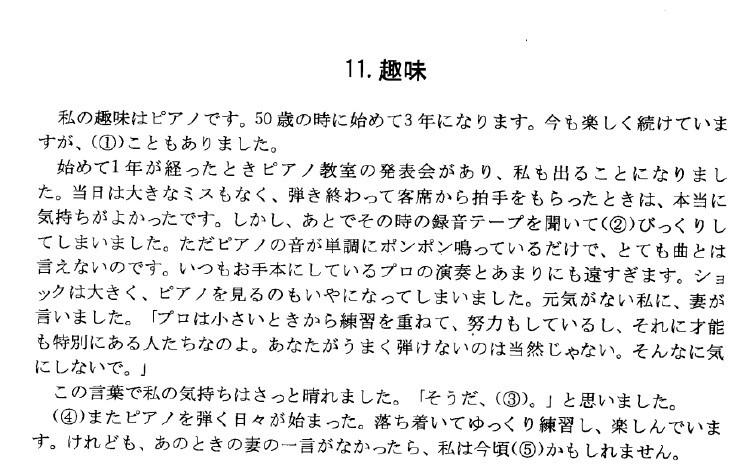 11. 趣味
私の趣味はピアノです。50歳の時に始めて3年になります。今も楽しく続けていま
すが、(①)こともありました。
始めて1年が経ったときピアノ教室の発表会があり、私も出ることになりまし
た。当日は大きなミスもなく、弾き終わって客席から拍手をもらったときは、本当に
気持ちがよかったです。しかし、あとでその時の録音テープを聞いて(②)びっくりし
てしまいました。ただピアノの音が単調にポンポン鳴っているだけで、とても曲とは
言えないのです。いつもお手本にしているプロの演奏とあまりにも遠すぎます。ショ
ックは大きく、ピアノを見るのもいやになってしまいました。元気がない私に、妻が
言いました。「プロは小さいときから練習を重ねて、努力もしているし、それに才能
も特別にある人たちなのよ。あなたがうまく弾けないのは当然じゃない。そんなに気
にしないで。」
この言葉で私の気持ちはさっと晴れました。「そうだ、(③)。」と思いました。
(④)またピアノを弾く日々が始まった。落ち着いてゆっくり練習し、楽しんでいま
す。けれども、あのときの妻の一言がなかったら、私は今頃(⑤)かもしれません。